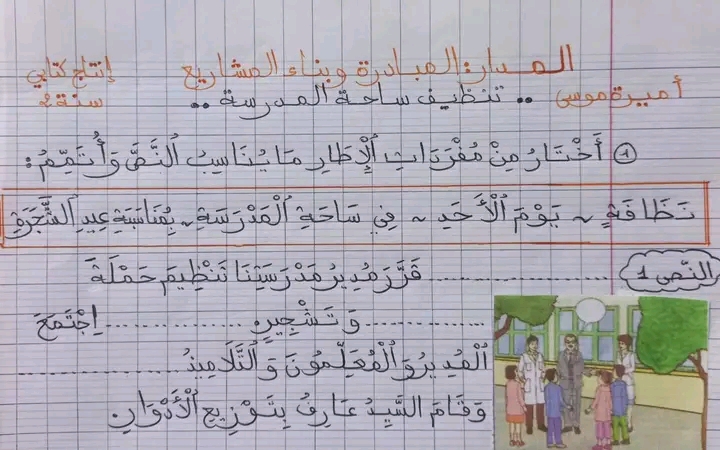 المدار: المبادرة وبناء المشاريع إنتاج كتابي
أميرة موسى .. تنظيف ساحة المدرسة .. سنة 2
1 أَخْتَارُ مِنْ مُفْرَدَاتِ الْإِطَارِ مَا يُنَاسِبُ النَّصَّ وَأُتَمِّمُ:
نَظَافَةٍ ~ يَوْمَ الْأَحَدِ ~ فِي سَاحَةِ الْمَدْرَسَةِ ~ بِمُنَاسَبَةِ عِيدِ الشَّجَرَةِ
النّص 1 ................ قَرَّرَ مُدِيرُ مَدْرَسَتِنَا تَنْظِيمَ حَمْلَةِ
................ وَتَشْجِيرٍ ................ اِجْتَمَعَ
الْمُدِيرُ وَ الْمُعَلِّمُونَ وَ التَّلَامِيذُ ................
وَقَامَ السَّيِّدُ عَارِفُ بِتَوْزِيعِ الْأَدْوَارِ